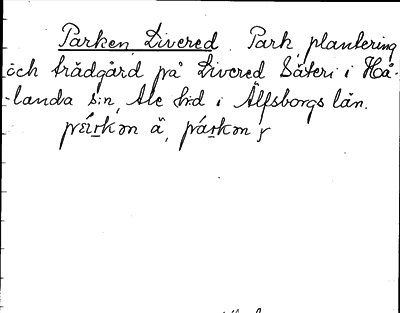 Parken, Livered. Park, plantering
och trädgård på Livered Säteri i Hå-
landa s:n, Ale hd i Älfsborgs län.
pàrkən ä, párkən y